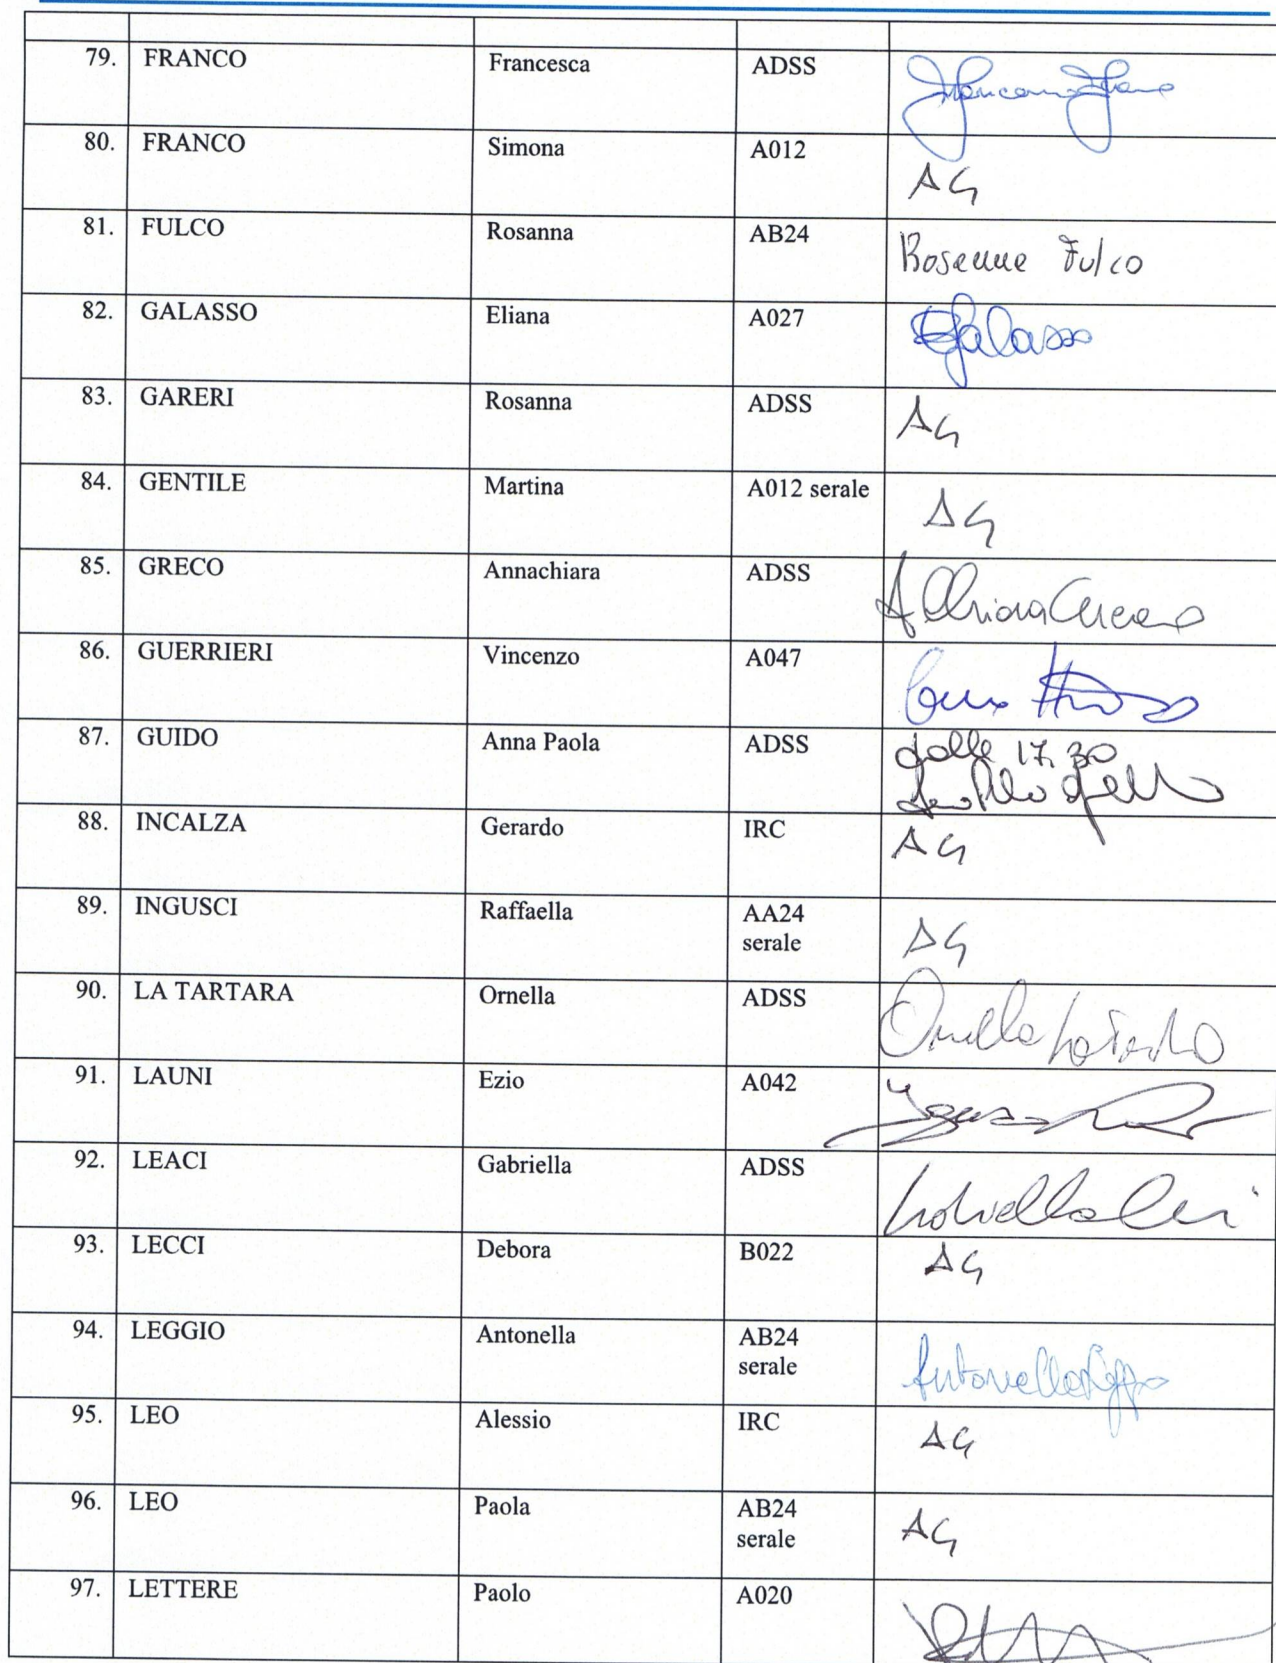 79. FRANCO Francesca ADSS
80. FRANCO Simona A012 AG
81. FULCO Rosanna AB24 Rosanna Fulco
82. GALASSO Eliana A027 EGalasso
83. GARERI Rosanna ADSS AG
84. GENTILE Martina A012 serale AG
85. GRECO Annachiara ADSS AChiara Greco
86. GUERRIERI Vincenzo A047
87. GUIDO Anna Paola ADSS dalle 17,30
88. INCALZA Gerardo IRC AG
89. INGUSCI Raffaella AA24 AG
serale
90. LA TARTARA Ornella ADSS Ornella La Tartara
91. LAUNI Ezio A042
92. LEACI Gabriella ADSS Gabriella Leaci
93. LECCI Debora B022 AG
94. LEGGIO Antonella AB24 Antonella Leggio
serale
95. LEO Alessio IRC AG
96. LEO Paola AB24 AG
serale
97. LETTERE Paolo A020